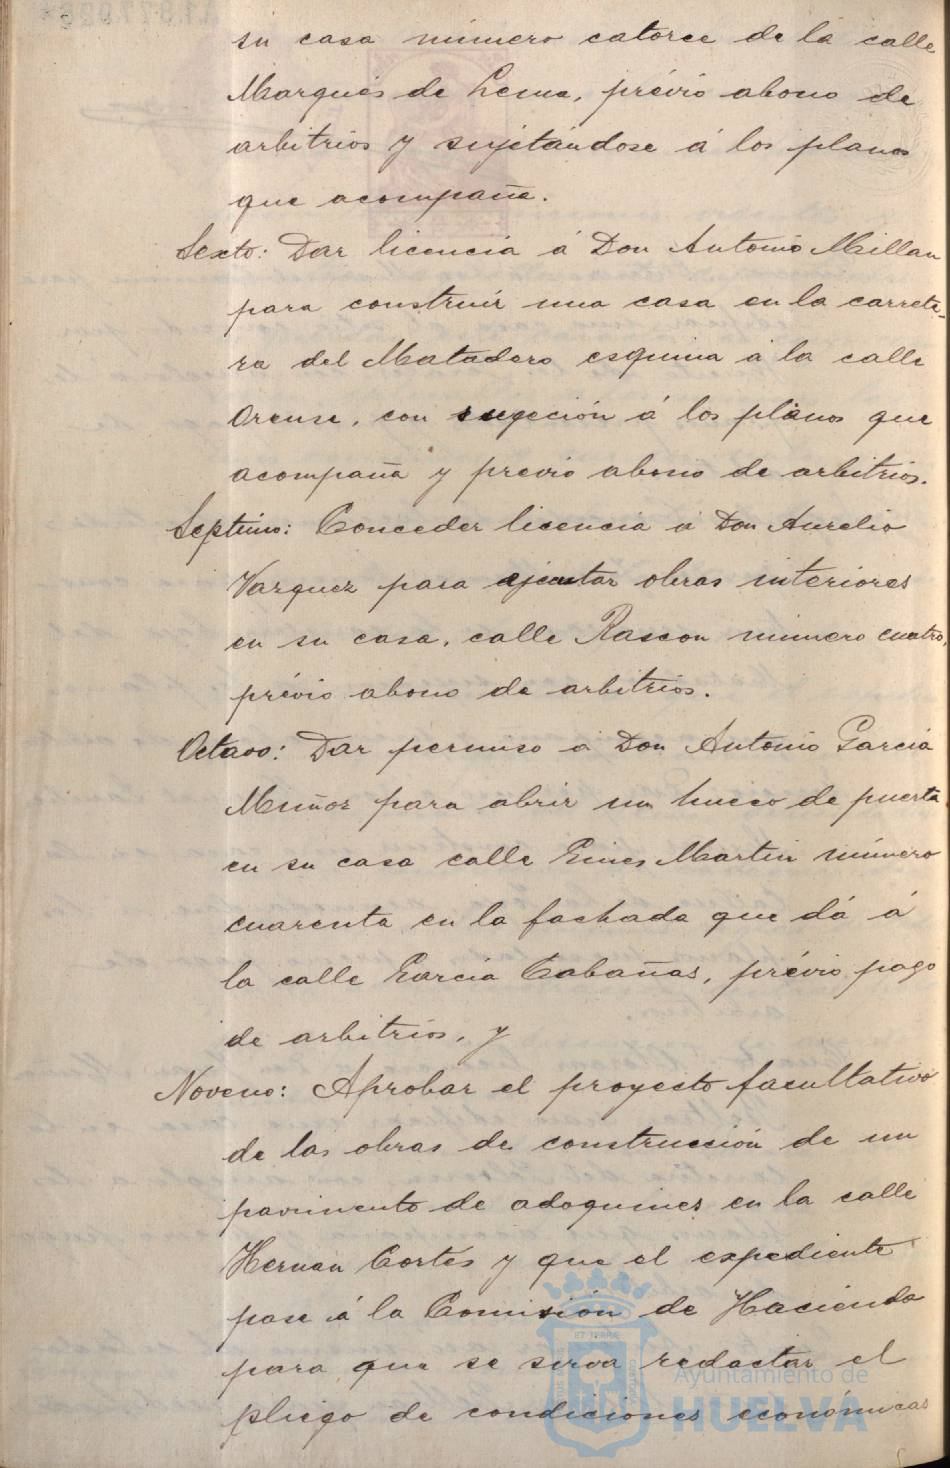 su casa número catorce de la calle
Marqués de Lema, prévio abono de
arbitrios y sujetándose á los planos
que acompaña.
Sexto: Dar licencia á Don Antonio Millan
para construir una casa en la carrete-
ra del Matadero esquina á la calle
Orense, con sugeción á los planos que
acompaña y previo abono de arbitrios.
Septimo: Conceder licencia á Don Aurelio
Varquez para ejecutar obras interiores
en su casa, calle Rascon número cuatro,
prévio abono de arbitrios.
Octavo: Dar permiso á Don Antonio García
Muñoz para abrir un hueco de puerta
en su casa calle Gines Martin número
cuarenta en la fachada que dá á
la calle García Cabañas, prévio pago
de arbitrios, y
Noveno: Aprobar el proyecto facultativo
de las obras de construcción de un
pavimento de adoquines en la calle
Hernán Cortés y que el expediente
pase á la Comisión de Hacienda
para que se sirva redactar el
pliego de condiciones económicas
Ayuntamiento de
HUELVA